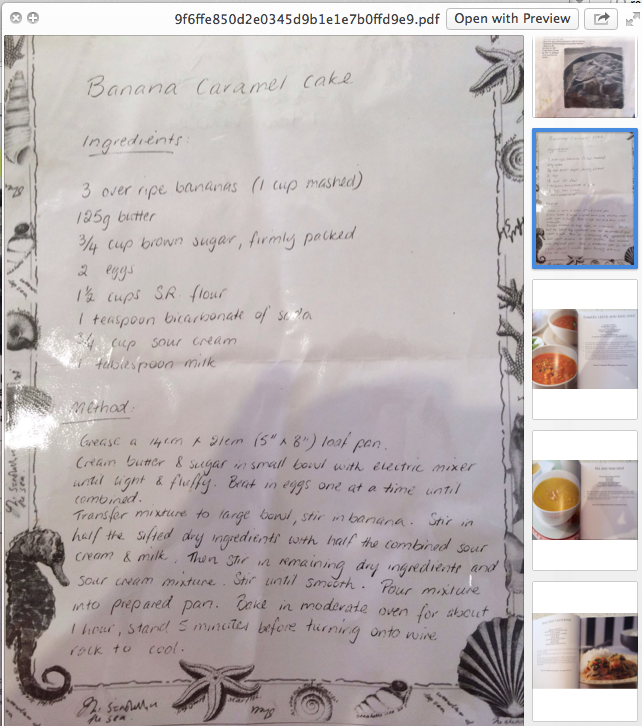 9f6ffe850d2e0345d9b1e1e7b0ffd9e9.pdf
Open with Preview
Banana Caramel Cake
Ingredients:
3 over ripe bananas (1 cup mashed)
125g butter
3/4 cup brown sugar, firmly packed
2 eggs
1½ cups SR flour
1 teaspoon bicarbonate of soda
3/4 cup sour cream
1 tablespoon milk
Method:
Grease a 14cm x 21cm (5" x 8") loaf pan.
Cream butter & sugar in small bowl with electric mixer
until light & fluffy. Beat in eggs one at a time until
combined.
Transfer mixture to large bowl, stir in banana. Stir in
half the sifted dry ingredients with half the combined sour
cream & milk. Then stir in remaining dry ingredients and
sour cream mixture. Stir until smooth. Pour mixture
into prepared pan. Bake in moderate oven for about
1 hour, stand 5 minutes before turning onto wire
rack to cool.